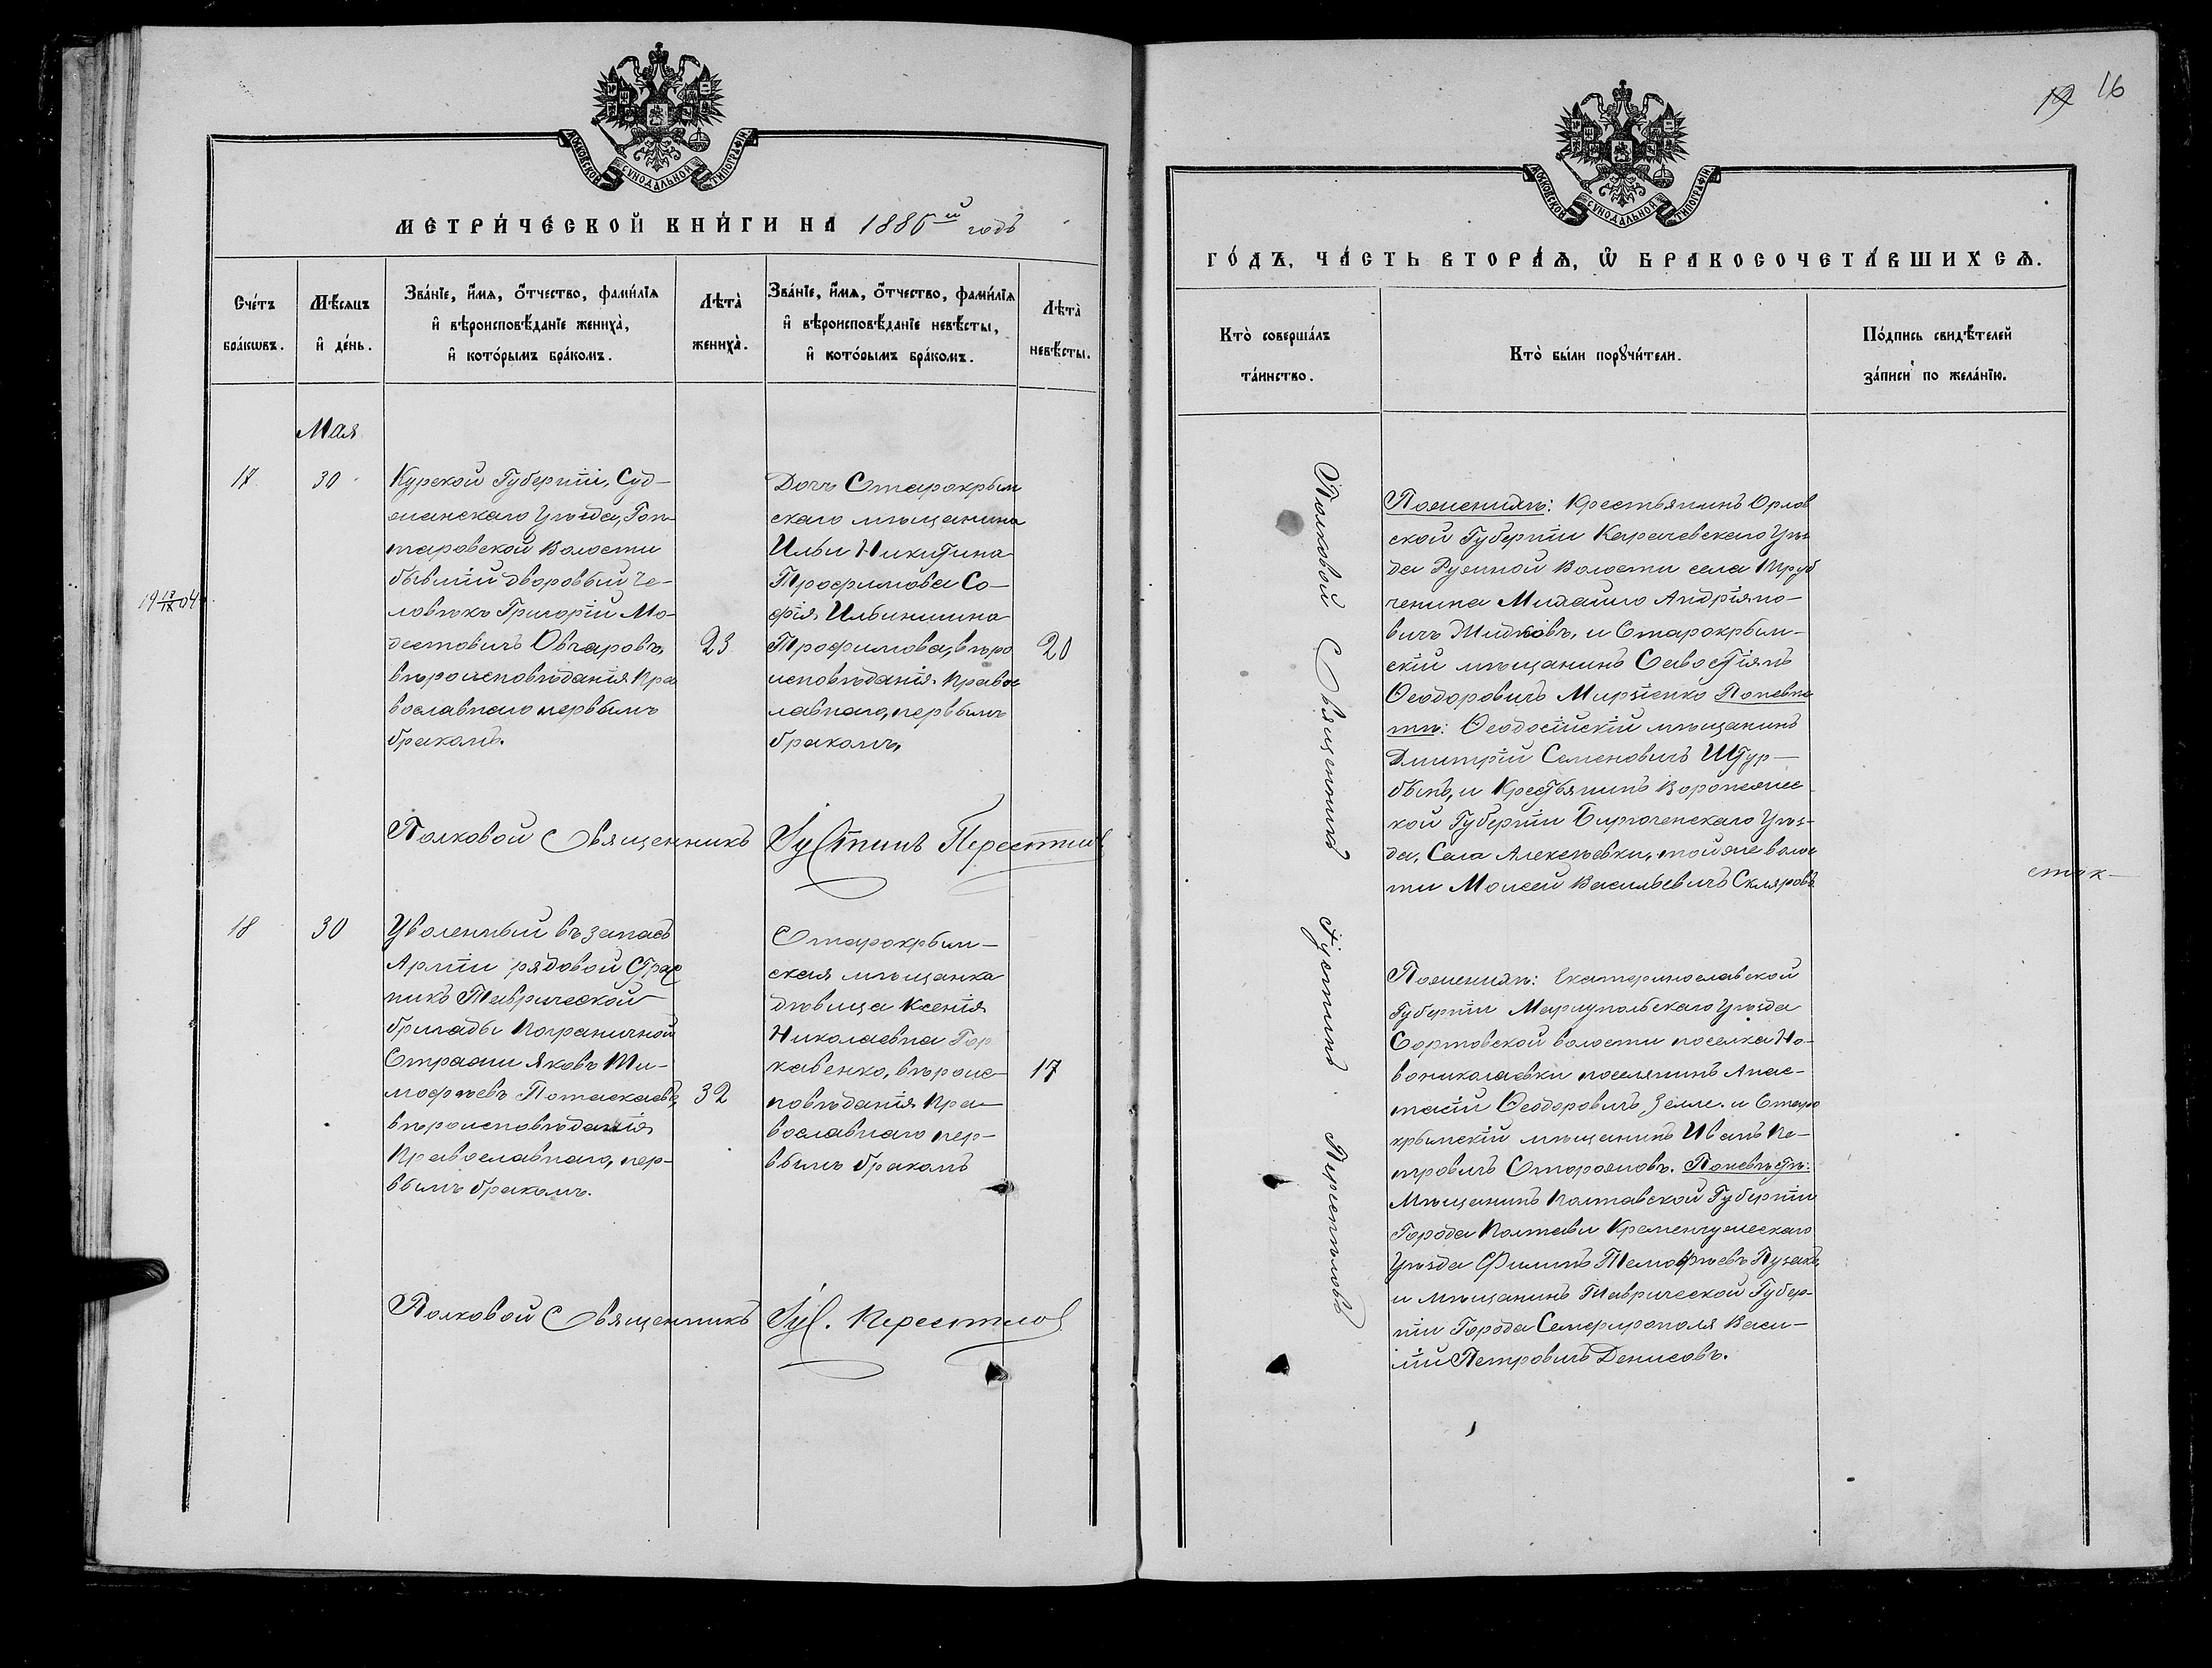 МОСКОВСКОЙ СѴНОДАЛЬНОЙ ТИПОГРАФІИ
МЕТРИ́ЧЕСКОЙ КНИ́ГИ НА 1886ой годъ
Сче́тъ бра́кωвъ.
Мѣ́сяцъ и҆ де́нь.
Зва́нїе, и҆́мѧ, ѻ҆́тчество, фами́лїѧ
и҆ вѣроисповѣ́данїе жениха̀,
и҆ кото́рымъ бра́комъ.
Лѣта̀ жениха̀.
Зва́нїе, и҆́мѧ, ѻ҆́тчество, фами́лїѧ
и҆ вѣроисповѣ́данїе невѣ́сты,
и҆ кото́рымъ бра́комъ.
Лѣта̀ невѣ́сты.
Мая
17
30
Курской Губерніи, Суд-
жанскаго Уѣзда, Гон-
таровской Волости
бывшій дворовый че-
ловѣкъ Григорій Мо-
дестовичъ Овчаровъ,
вѣроисповѣданія Пра
вославнаго первымъ
бракомъ.
23
Дочь Старокрым
скаго мѣщанина
Ильи Никитина
Трофимова Со-
фія Ильинишна
Трофимова, вѣро
исповѣданія Правос
лавнаго, первымъ
бракомъ,
20
Полковой Священникъ Іустинъ Переспѣлов
18
30
Уволенный въ запасъ
Арміи рядовой Страж
никъ Таврической
бригады Пограничной
Стражи Яковъ Ти-
мофѣевъ Потаскаевъ,
вѣроисповѣданія
Православнаго, пер-
вымъ бракомъ.
32
Старокрым-
ская мѣщанка
дѣвица Ксенія
Николаевна Гор
кавенко, вѣроис-
повѣданія Пра-
вославнаго пер-
вымъ бракомъ
17
Полковой Священникъ Іус. Переспѣлов
19 16
МОСКОВСКОЙ СѴНОДАЛЬНОЙ ТИПОГРАФІИ
ГО́ДЪ, ЧА́СТЬ ВТОРА́Ѧ, Ѡ҆ БРАКОСОЧЕТА́ВШИХСѦ.
Кто̀ соверша́лъ та́инство.
Кто̀ бы́ли порꙋчи́тели.
По́дпись свидѣ́телей
за́писи по жела́нїю.
Полковой Священникъ Іустинъ Переспѣловъ
По женихѣ: Крестьянинъ Орлов
ской Губерніи Карачевскаго Уѣз
да Ружной Волости села
Михаило Андріяно-
вичъ Жидковъ, и Старокрым-
скій мѣщанинъ Савостіянъ
Ѳеодоровичъ Мирзіенко По невѣс
тѣ: Ѳеодосійскій мѣщанинъ
Дмитрій Семеновичъ Штур-
бинъ, и Крестьянинъ Воронежс
кой Губерніи Бирюченскаго Уѣз-
да, Села Алексѣевки, той же волос
ти Моисей Васильевичъ Скляровъ
По женихѣ: Екатеринославской
Губерніи Маріупольскаго Уѣзда
Сартовской волости поселка Но-
вониколаевки поселянинъ Анас-
тасій Ѳеодоровичъ Земле. и Старо
крымскій мѣщанинъ Иванъ Пе-
тровичъ Сторожовъ. По невѣстѣ:
Мѣщанинъ Полтавской Губерніи
Города Полтавы Кременчужскаго
Уѣзда Филипъ Темофѣевъ Пузакъ,
и мѣщанинъ Таврической Губер-
ніи Города Семферополя Васи-
лій Петровичъ Денисовъ.